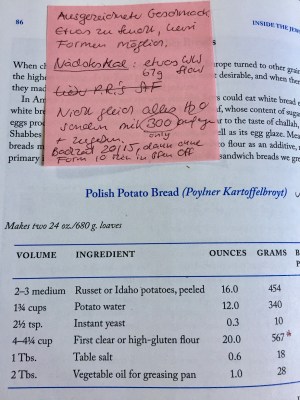 86
INSIDE THE JEW
Ausgezeichneter Geschmack,
Etwas zu feucht, kein
Formen möglich.
Nächstes Mal: etwas
67g flour
Nicht gleich alles H2O
sondern mit 300 anfangen
only
+ zugeben.
Backzeit 20/15, dann ohne
Form 10 min in Ofen Off
When ch
urope turned to other grai
the highe
desirable, and when the
they mad
In Am
s could eat white bread e
white bre
whose content of suga
eggs prod
to the taste of challah,
Shabbes
ell as its egg glaze. Mea
breads m
o flour as an additive,
sandwich breads we gr
Polish Potato Bread (Poylner Kartoffelbroyt)
Makes two 24 oz./680 g. loaves
VOLUME INGREDIENT OUNCES GRAMS
2–3 medium Russet or Idaho potatoes, peeled 16.0 454
1¾ cups Potato water 12.0 340
2½ tsp. Instant yeast 0.3 10
4–4¼ cup First clear or high-gluten flour 20.0 567*
1 Tbs. Table salt 0.6 18
2 Tbs. Vegetable oil for greasing pan 1.0 28